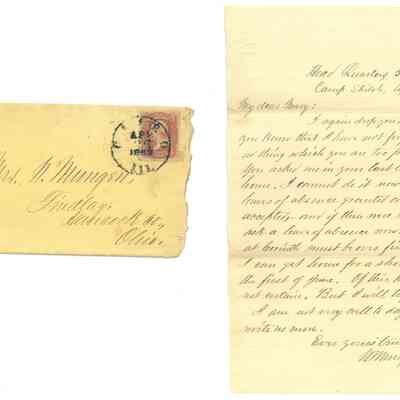 CAIRO
APR
1862
ILL.
Mrs. W. Mungen,
Findlay,
Hancock Co,
Ohio.
Head Quarters 5
Camp Shiloh,
My dear Mary:
I again drop you
you know that I have not
nothing which you are too
You asked me in your last
home. I cannot do it now
leaves of absence granted
and if there were
ask a leave of absence now
at Corinth must be over
I can get home for a sho
the first of June. Of this
not certain. But I will t
I am not very well to da
write no more.
Ever yours tru
W Mun